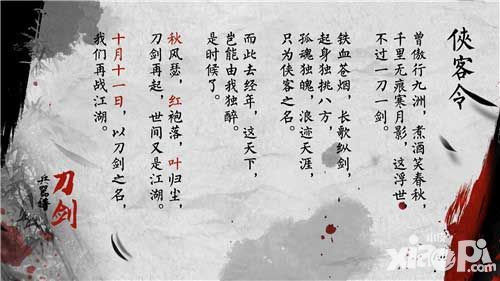 侠客令
曾傲行九洲，煮酒笑春秋，
千里无痕寒月影，这浮世
不过一刀一剑。
铁血苍烟，长歌纵剑，
起身独挑八方，
孤魂独魄，浪迹天涯，
只为侠客之名。
而此去经年，这天下，
岂能由我独醉。
是时候了。
秋风瑟，红袍落，叶归尘，
刀剑再起，世间又是江湖。
十月十一日，以刀剑之名，
我们再战江湖。
刀剑
兵器谱
xiaopi.com